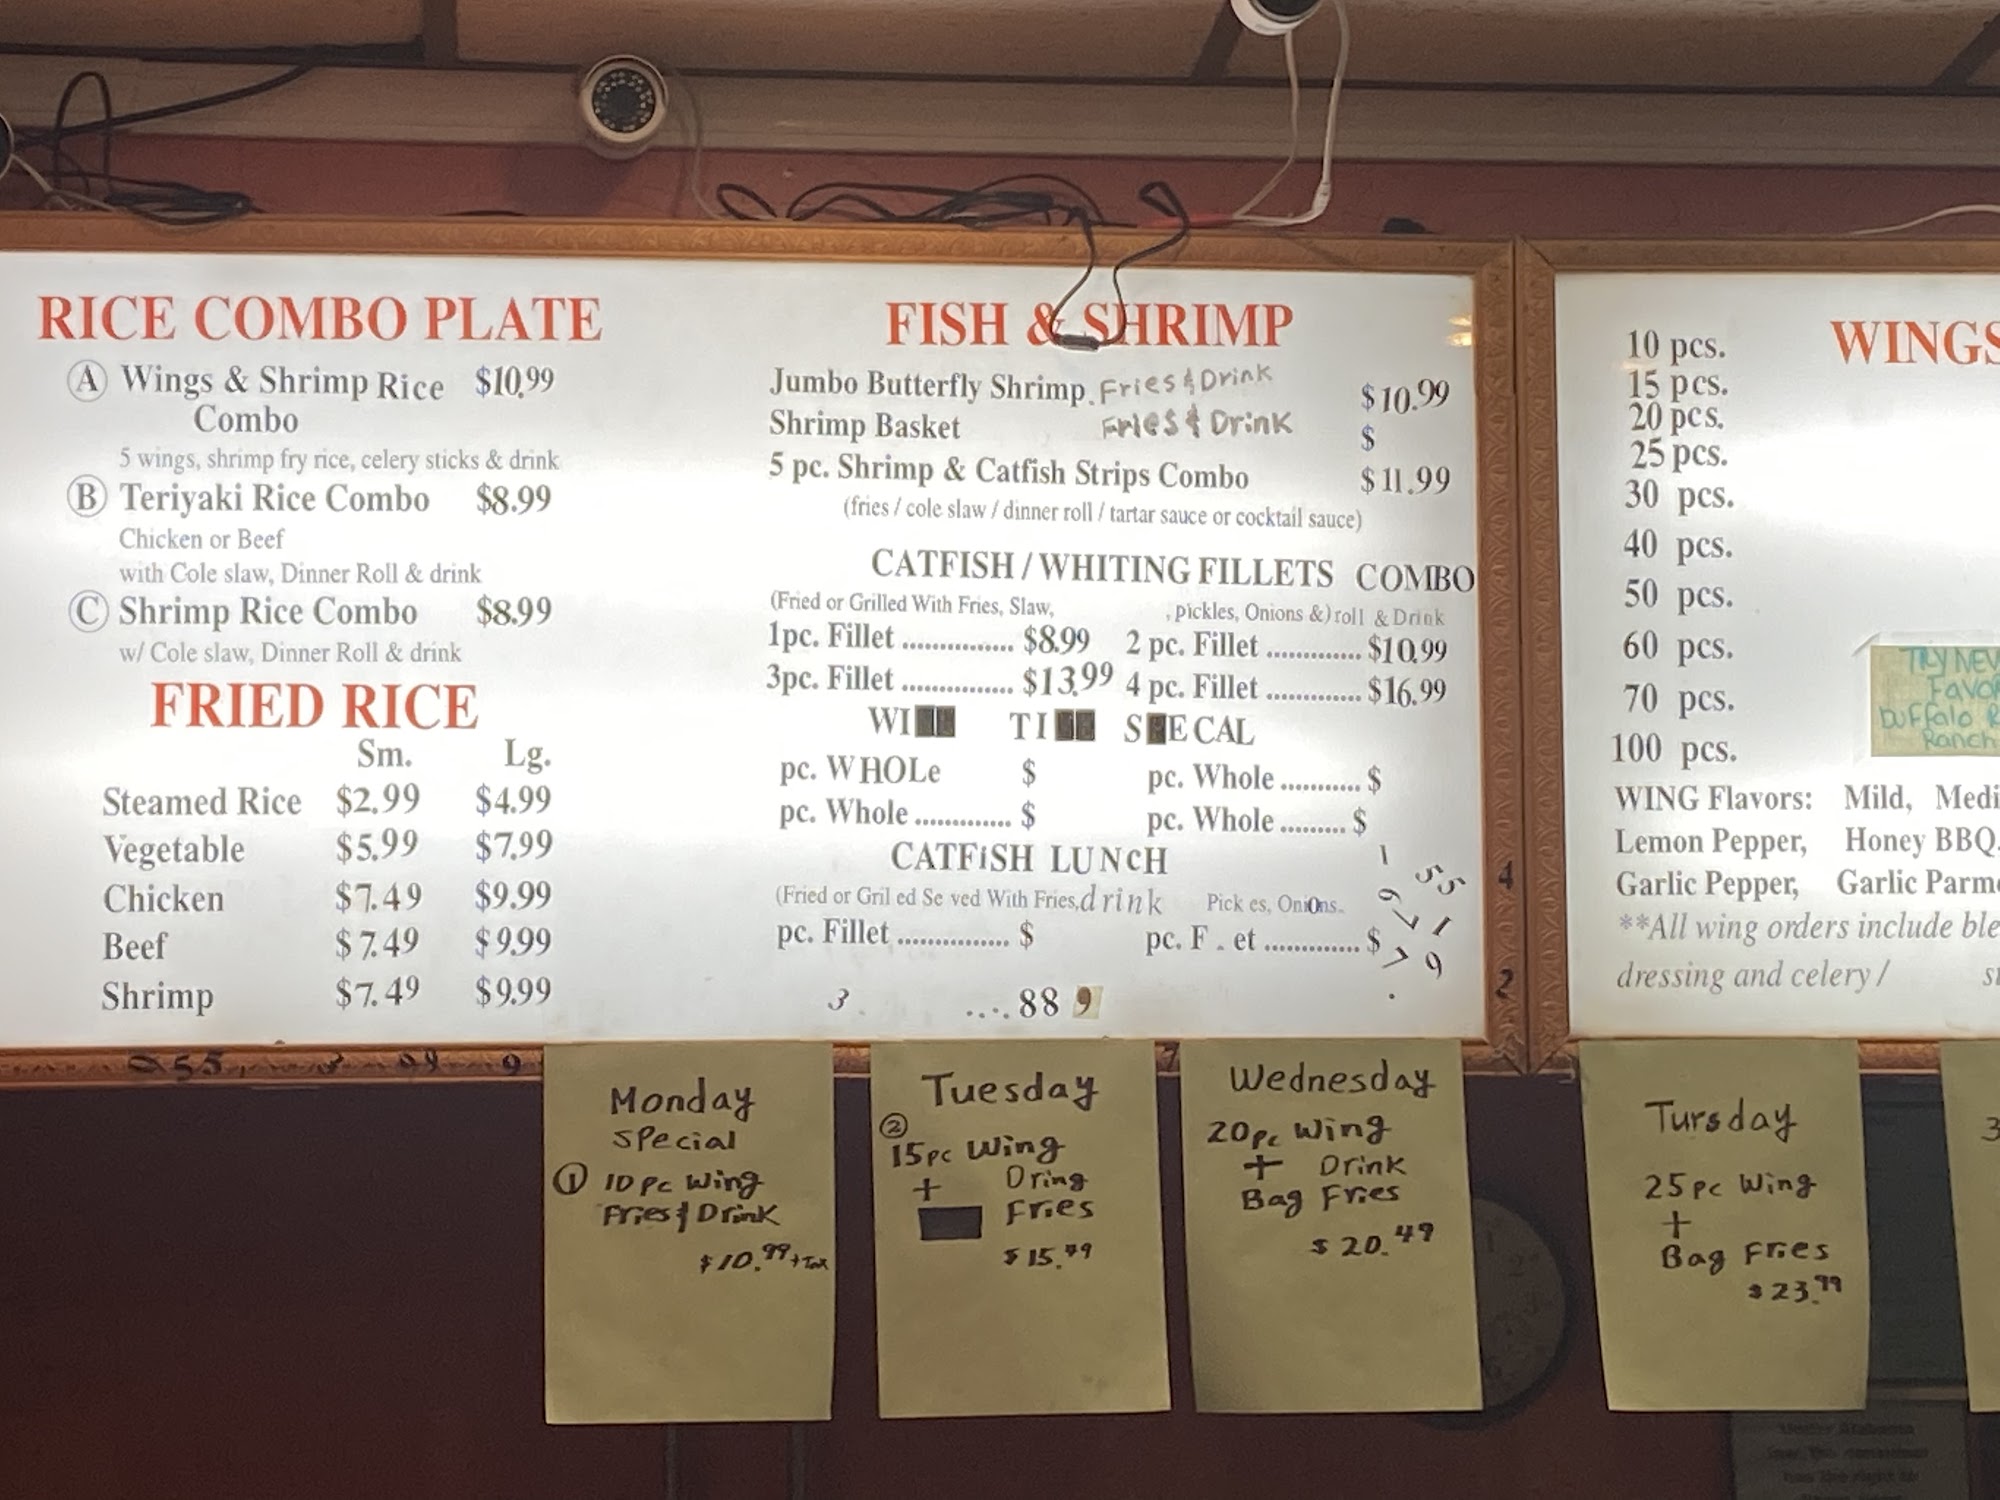 RICE COMBO PLATE
Ⓐ Wings & Shrimp Rice $10.99
Combo
5 wings, shrimp fry rice, celery sticks & drink
Ⓑ Teriyaki Rice Combo $8.99
Chicken or Beef
with Cole slaw, Dinner Roll & drink
Ⓒ Shrimp Rice Combo $8.99
w/ Cole slaw, Dinner Roll & drink
FRIED RICE
Sm. Lg.
Steamed Rice $2.99 $4.99
Vegetable $5.99 $7.99
Chicken $7.49 $9.99
Beef $7.49 $9.99
Shrimp $7.49 $9.99
FISH & SHRIMP
Jumbo Butterfly Shrimp. Fries & Drink $10.99
Shrimp Basket Fries & Drink $
5 pc. Shrimp & Catfish Strips Combo $11.99
(fries / cole slaw / dinner roll / tartar sauce or cocktail sauce)
CATFISH / WHITING FILLETS COMBO
(Fried or Grilled With Fries, Slaw, , pickles, Onions &) roll & Drink
1pc. Fillet ............... $8.99 2 pc. Fillet ............. $10.99
3pc. Fillet ............... $13.99 4 pc. Fillet ............. $16.99
WI TI S E CAL
pc. WHOLe $ pc. Whole ........... $
pc. Whole ............. $ pc. Whole ......... $
CATFiSH LUNcH
(Fried or Gril ed Se ved With Fries, drink Pick es, OniOns.
pc. Fillet ............... $ pc. F . et ............. $
3 . .... 88 9
WINGS
10 pcs.
15 pcs.
20 pcs.
25 pcs.
30 pcs.
40 pcs.
50 pcs.
60 pcs.
70 pcs.
100 pcs.
TRY NEW
Favor
Buffalo R
Ranch
WING Flavors: Mild, Medi
Lemon Pepper, Honey BBQ,
Garlic Pepper, Garlic Parme
**All wing orders include ble
dressing and celery /
Monday
Special
① 10 pc Wing
Fries & Drink
$10.99 + Tax
Tuesday
②
15pc Wing
+ Dring
Fries
$15.99
Wednesday
20pc Wing
+ Drink
Bag Fries
$20.49
Tursday
25pc Wing
+
Bag Fries
$23.99